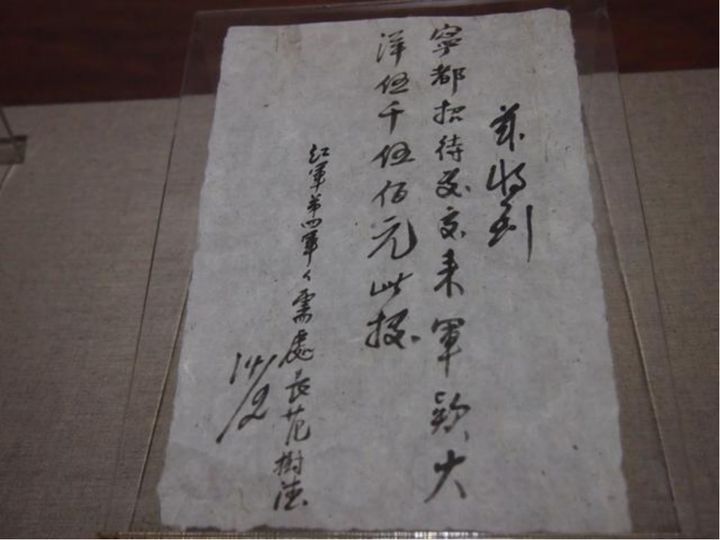 兹收到
寧都招待处交来軍款大
洋伍千伍佰元此據
紅軍第四軍々需處長范樹德
14/2